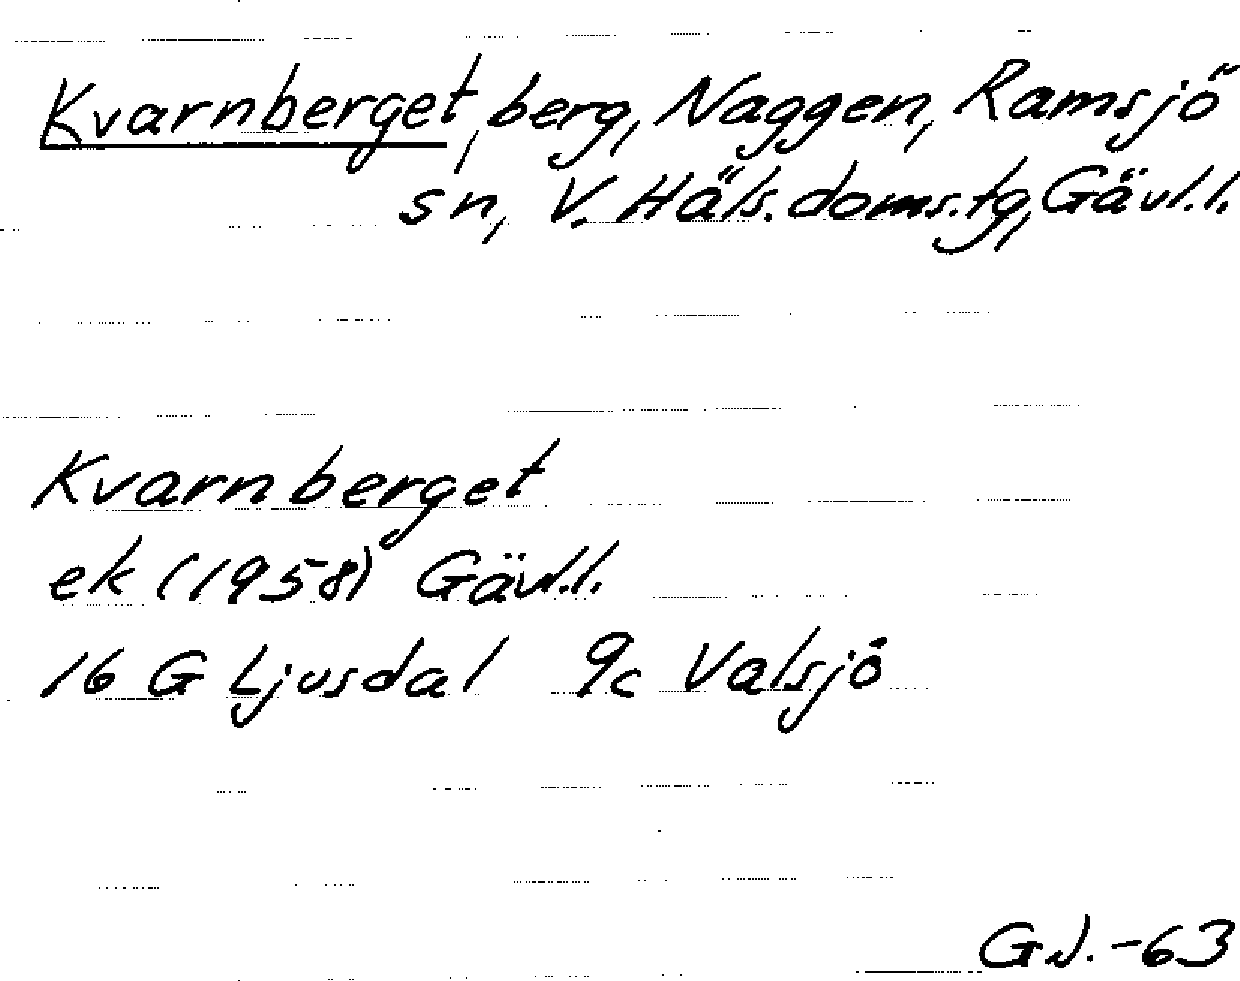 Kvarnberget, berg, Naggen, Ramsjö
sn, V. Häls. doms.tg, Gävl.l.
Kvarnberget
ek (1958) Gävl.l.
16 G Ljusdal 9c Valsjö
GJ. -63